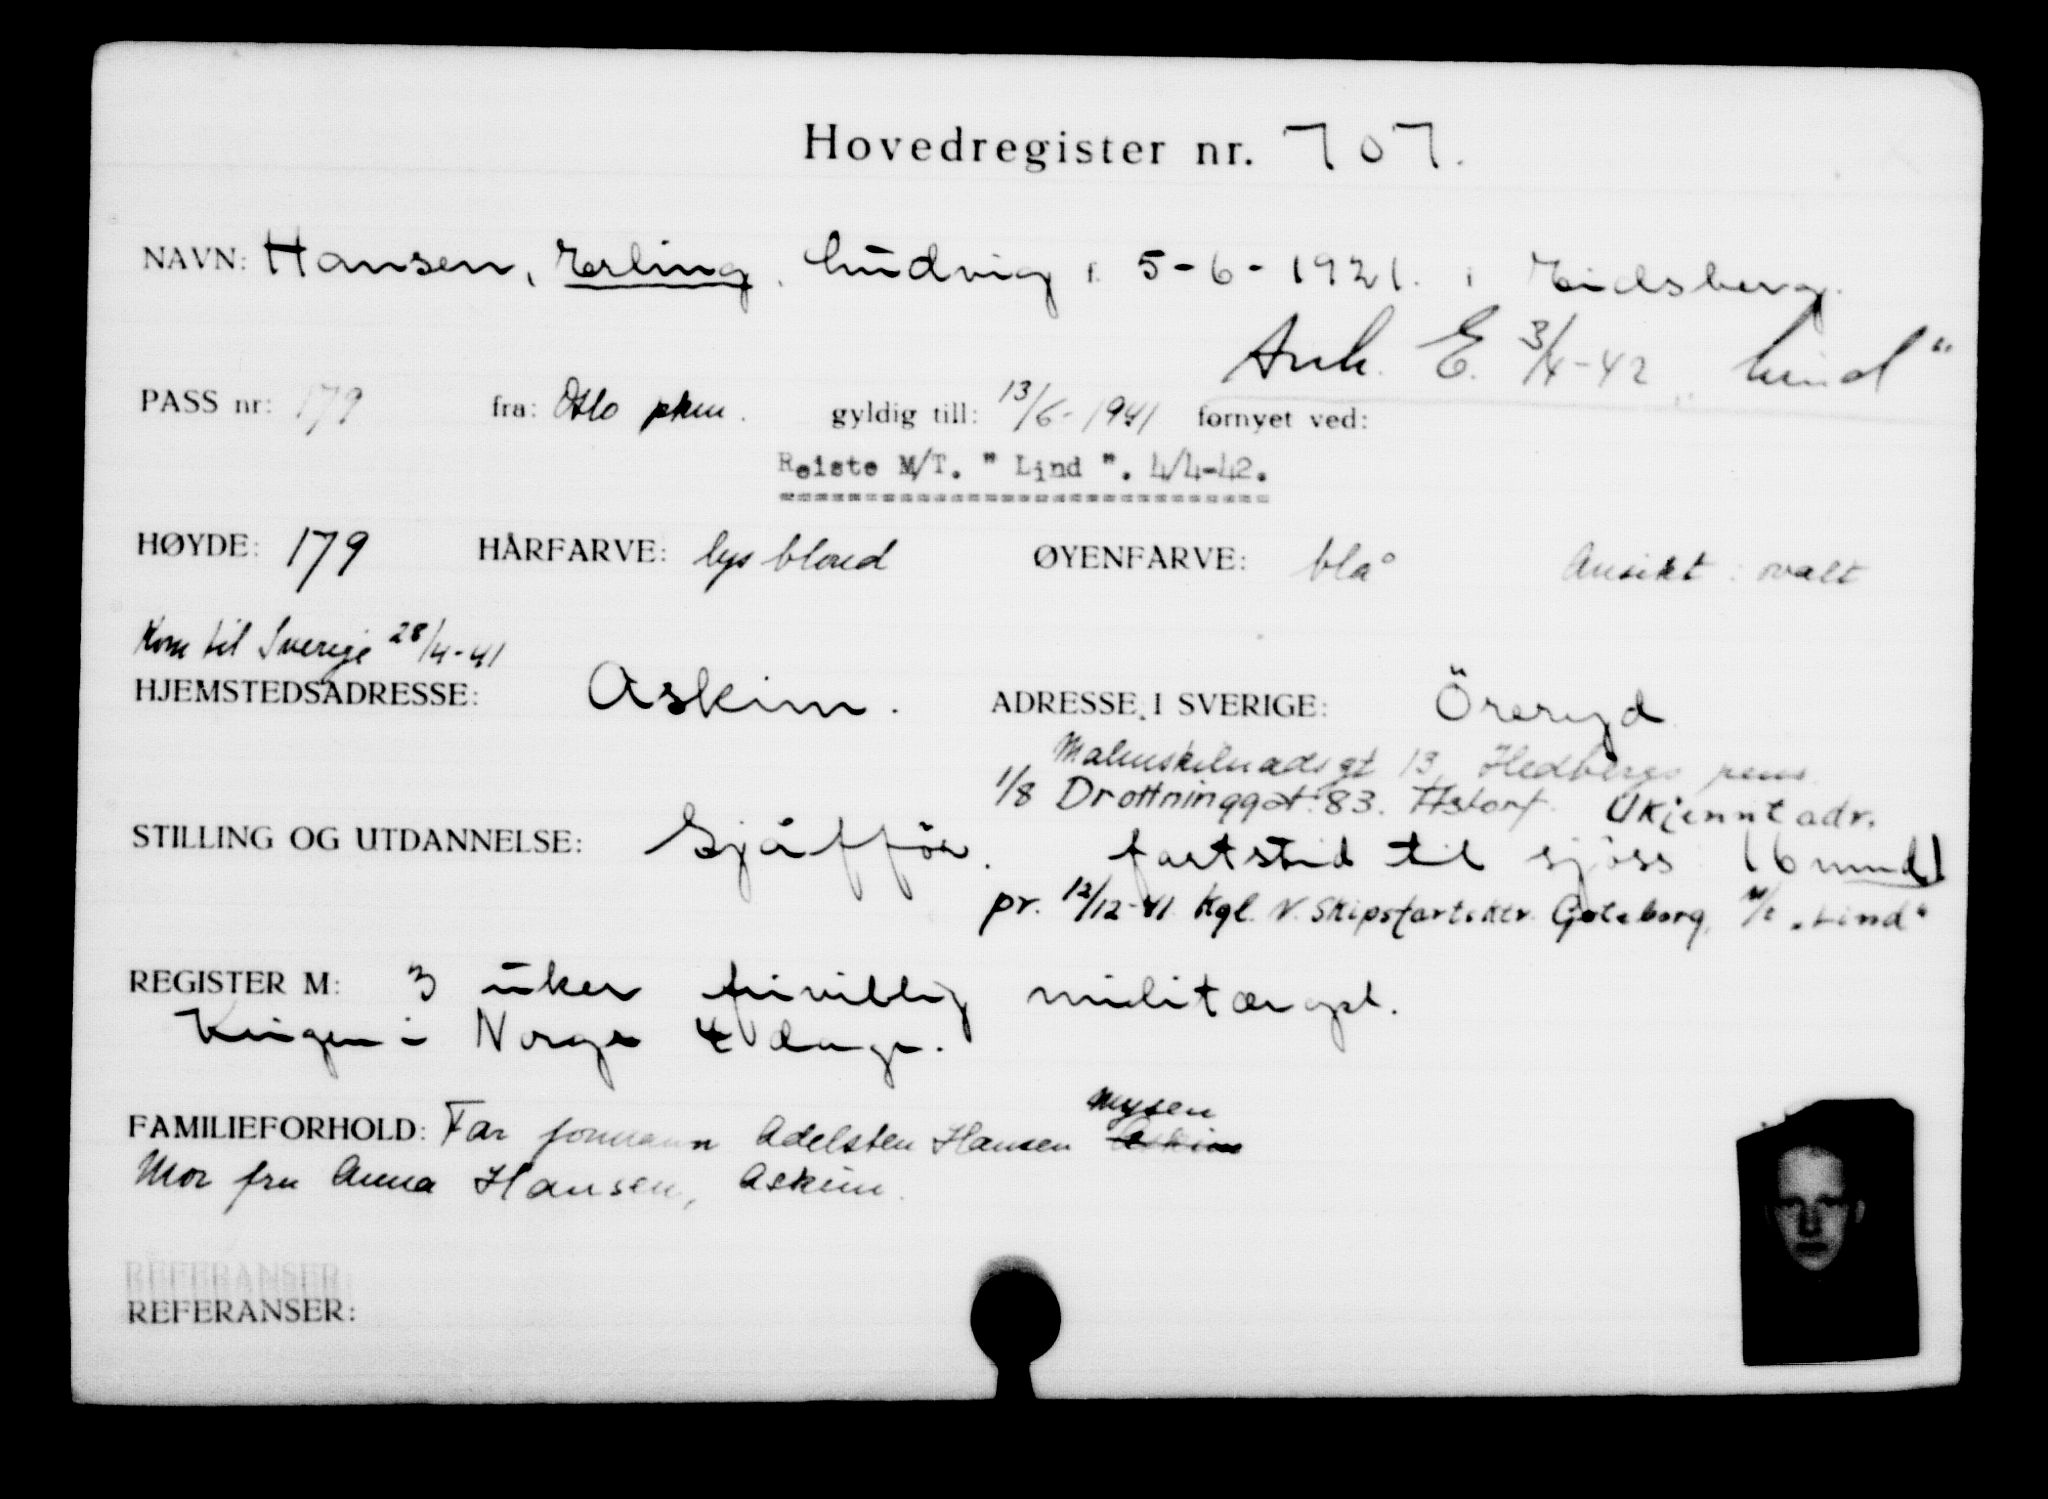 Hovedregister nr. 707.
NAVN: Hansen, Erling. Ludvig f. 5-6-1921. i Eidsberg.
Ank. E. 3/4-42 „Lind“
PASS nr: 179 fra: Oslo pkm. gyldig till: 13/6-1941 fornyet ved:
Reiste M/T. " Lind ". 4/4-42.
HØYDE: 179 HÅRFARVE: lys blond ØYENFARVE: blå Ansikt: ovalt
Kom til Sverige 28/4-41
HJEMSTEDSADRESSE: Askim. ADRESSE I SVERIGE: Öreryd
Malmskilnadsgt 13, Hedbergs pens.
1/8 Drottninggat. 83. Ukjennt adr.
STILLING OG UTDANNELSE: Sjåfför. fartstid til sjöss (6 mnd)
pr. 12/12-41 Kgl. N. Skipsfartsktr. Göteborg, M/T „Lind“
REGISTER M: 3 uker frivillig militæropl.
Krigen i Norge 4 dage.
FAMILIEFORHOLD: Far formann Adelsten Hansen Askim Mysen
Mor fru Anna Hansen, Askim.
REFERANSER:
REFERANSER: